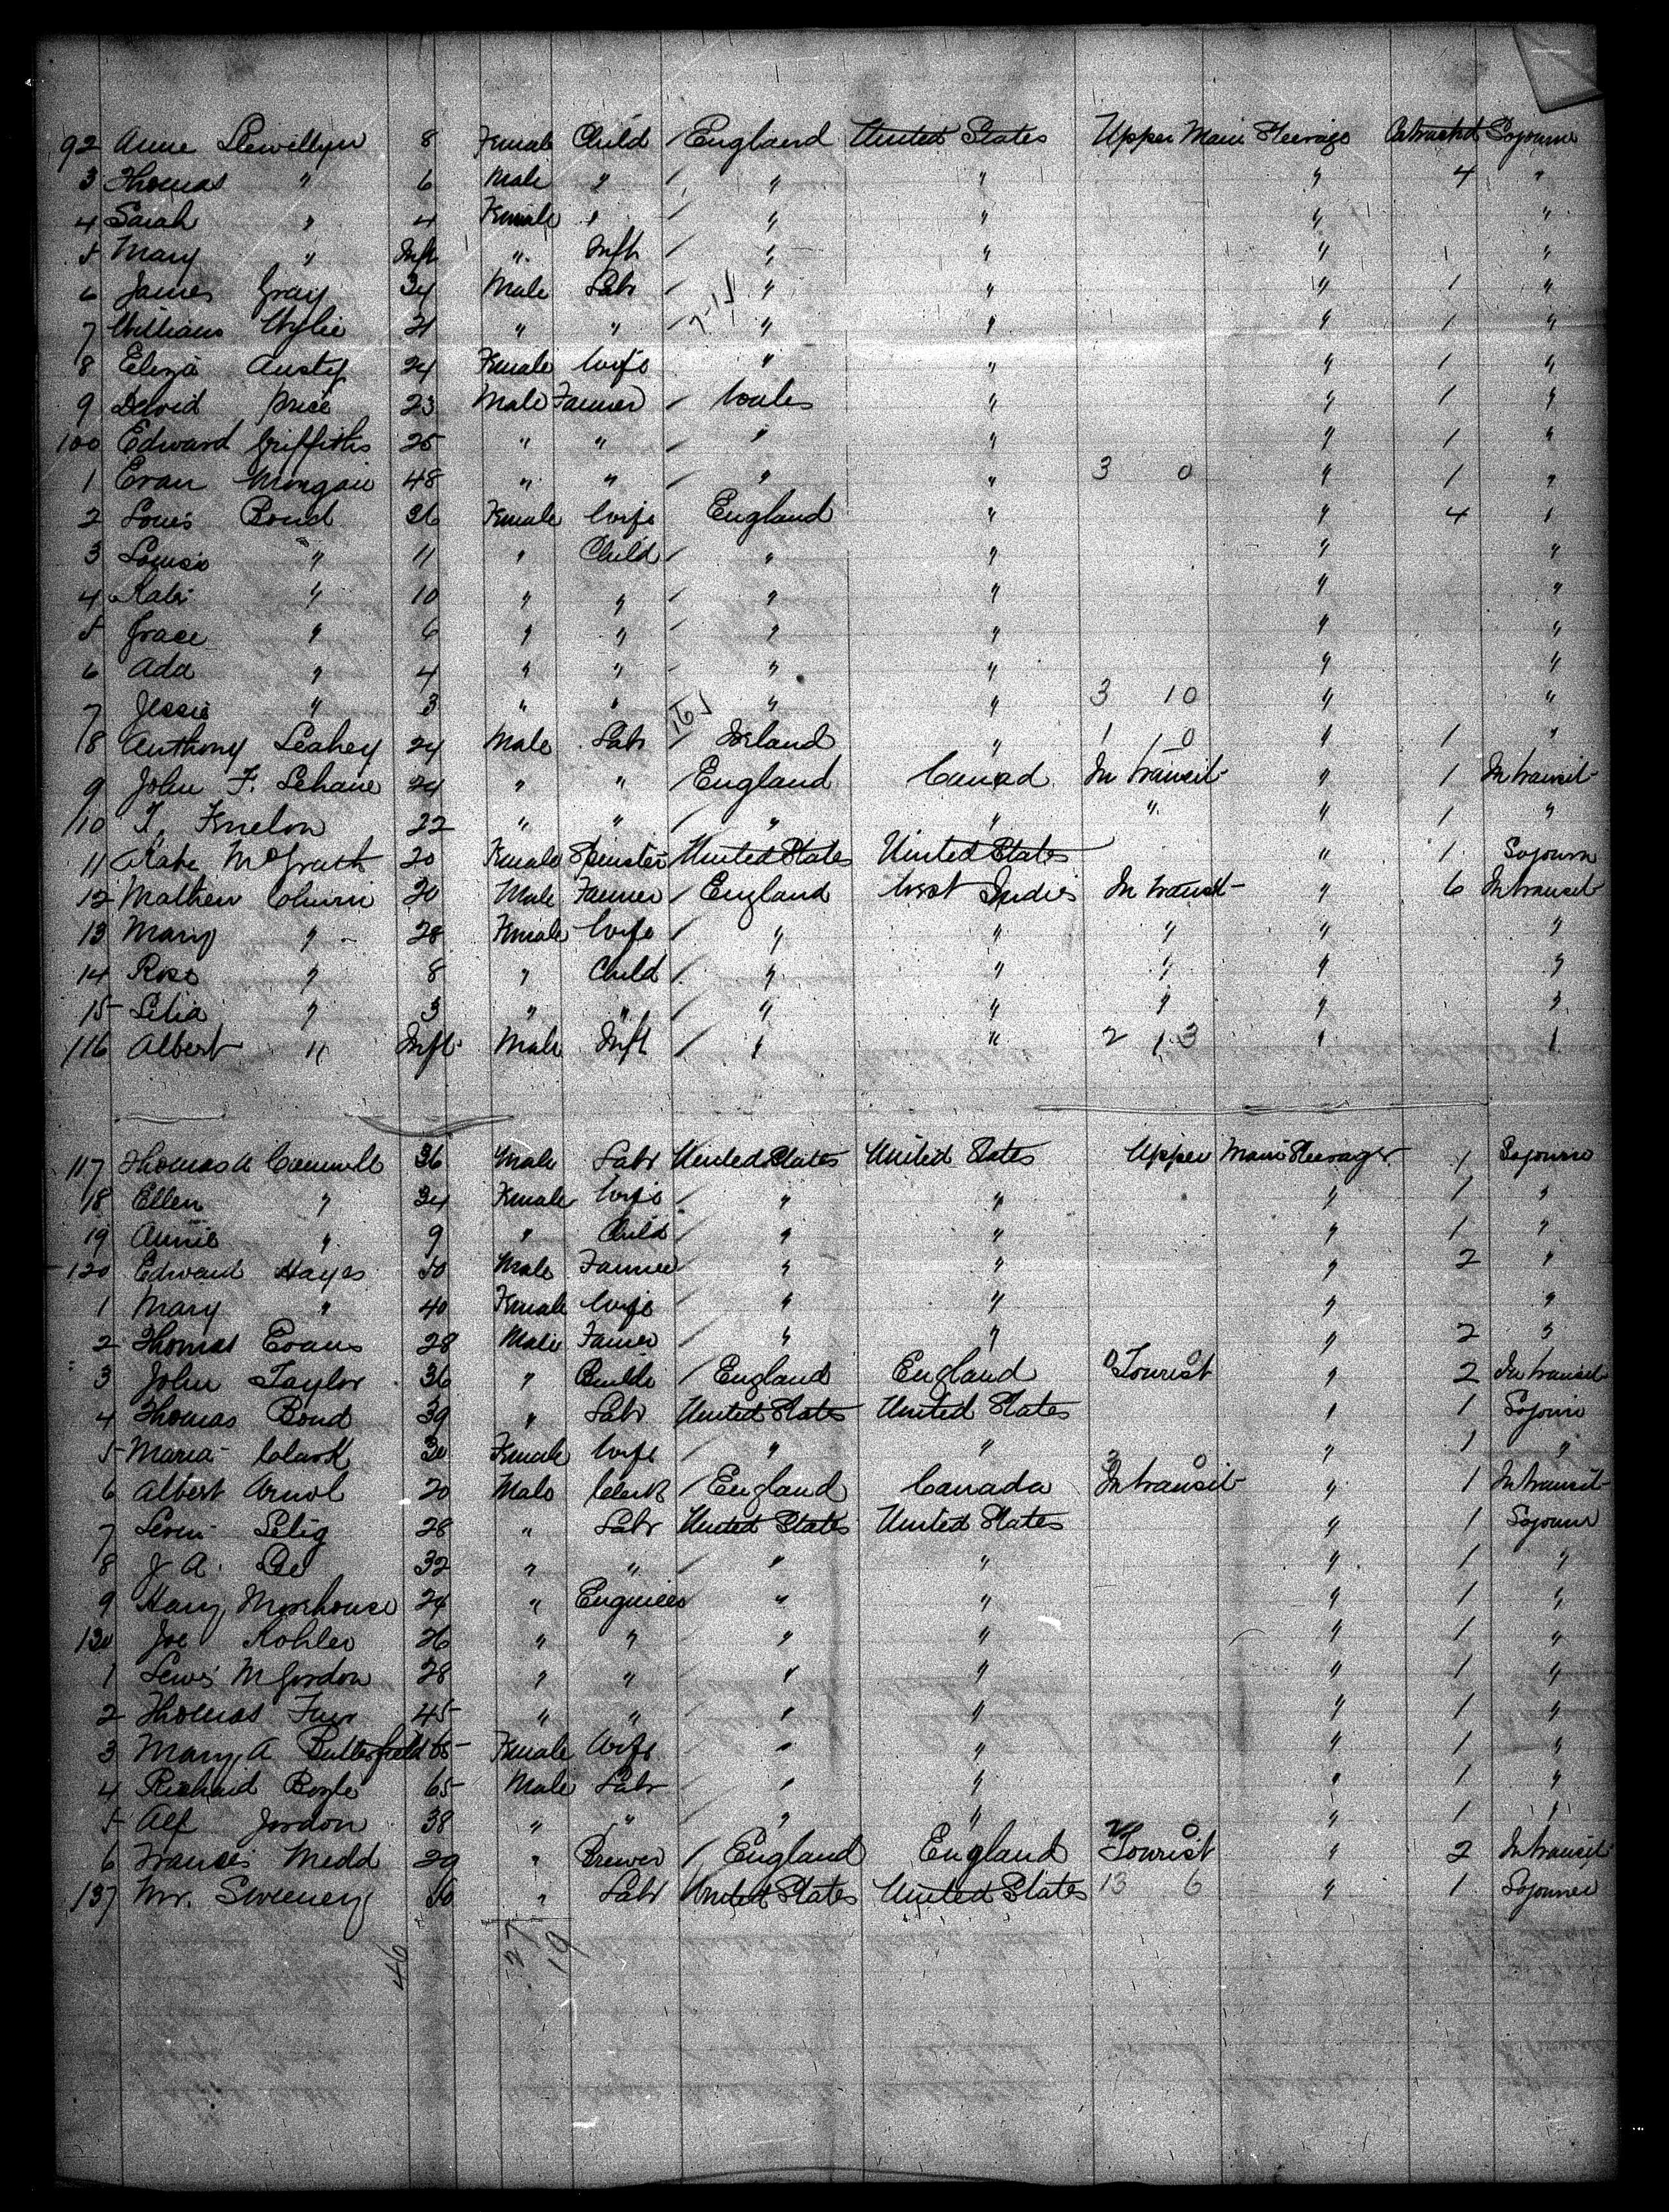 92 Anne Llewillyn 8 Female Child / England United States Upper Main Steerage Sojourn
3 Thomas " 6 Male " / " " " 4 "
4 Sarah " 4 Female " / " " " "
5 Mary " Inft " Inft / " " " "
6 James Gray 24 Male Labr / " " " 1 "
7 William Wylie 21 " " / " " " 1 "
8 Eliza 24 Female Wife " " " 1 "
9 David Price 23 Male Farmer / Wales " " 1 "
100 Edward Griffiths 25 " " / " " " 1 "
1 Evan Morgan 48 " " / " " 3 0 " 1 "
2 Bond 36 Female Wife England " " 4 "
3 Louisa " 11 " Child / " " " "
4 " 10 " " / " " " "
5 Grace " 6 " " / " " " "
6 Ada " 4 " " " " " "
7 Jessie " 3 " " " " 3 10 " "
8 Anthony Leahey 24 Male Labr / Irland " 1 0 " 1 "
9 John F. Lehane 24 " " / England Canad In transit " 1 In transit
110 T. 22 " " / " " " " 1 "
11 Kate McGrath 20 Female Spinster United States United States " 1 Sojourn
12 Mathew 20 Male Farmer / England West Indies In transit " 6 In transit
13 Mary " 28 Female Wife / " " " " "
14 Rose " 8 " Child / " " " " "
15 Lelia " 3 " " / " " " " "
116 Albert " Inft Male Inft / " " 2 13 " "
117 Thomas 36 Male Labr United States United States Upper Main Steerage 1 Sojourn
18 Ellen " 34 Female Wife / " " " 1 "
19 Annie " 9 " Child / " " " 1 "
120 Edward Hayes 50 Male Farmer / " " " 2 "
1 Mary " 40 Female Wife / " " " "
2 Thomas Evans 28 Male Farmer / " " " 2 "
3 John Taylor 36 " / England England Tourist " 2 In transit
4 Thomas Bond 39 " Labr United States United States " 1 Sojourn
5 Maria Clark 30 Female Wife / " " " 1 "
6 Albert Arnol 20 Male Clerk / England Canada In transit " 1 In transit
7 Selig 28 " Labr United States United States " 1 Sojourn
8 J A. Lee 32 " " " " " 1 "
9 Harry Morehouse 24 " Engineer " " " 1 "
130 Joe Kohler 26 " " " " " 1 "
1 Lewis M Gordon 28 " " " " " 1 "
2 Thomas 45 " " " " " 1 "
3 Mary A Butterfield 65 Female Wife " " " 1 "
4 Richard Boyle 65 Male Labr " " " 1 "
5 Alf Jordon 38 " " " " " 1 "
6 Francis Medd 29 " Brewer / England England Tourist " 2 In transit
137 Mr. Sweeney 50 " Labr United States United States 13 6 " 1 Sojourner
46 27 19